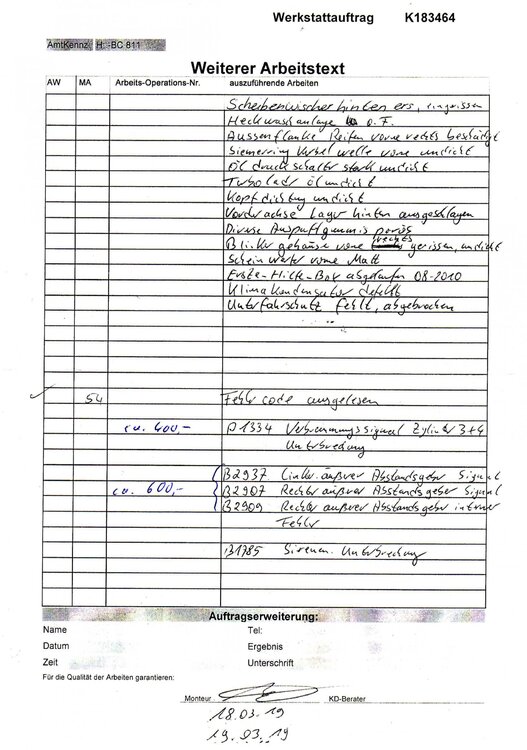 Werkstattauftrag K183464
AmtKennz. H: -BC 811
Weiterer Arbeitstext
AW MA Arbeits-Operations-Nr. auszuführende Arbeiten
Scheibenwischer hinten ers, eingerissen
Heckwaschanlage o.F.
Aussenflanke Reifen vorne rechts beschädigt
Simmerring Kurbelwelle vorne undicht
Öldruckschalter stark undicht
Turbolader ölundicht
Kopfdichtung undicht
Vorderachse Lager hinten ausgeschlagen
Diverse Auspuffgummis porös
Blinkergehäuse vorne rechts gerissen, undicht
Scheinwerfer vorne Matt
Erste-Hilfe-Box abgelaufen 08-2010
Klimakondensator defekt
Unterfahrschutz fehlt, abgebrochen
54 Fehlercode ausgelesen
ca. 400,- P1334 Verbrennungssignal Zylinder 3+4
Unterbrechung
B2937 Linker äußerer Abstandsgeber Signal
ca. 600,- B2907 Rechter äußerer Abstandsgeber Signal
B2909 Rechter äußerer Abstandsgeber interner
Fehler
B1785 Sirenen. Unterbrechung
Auftragserweiterung:
Name Tel:
Datum Ergebnis
Zeit Unterschrift
Für die Qualität der Arbeiten garantieren:
Monteur KD-Berater
18.03.19
19.03.19